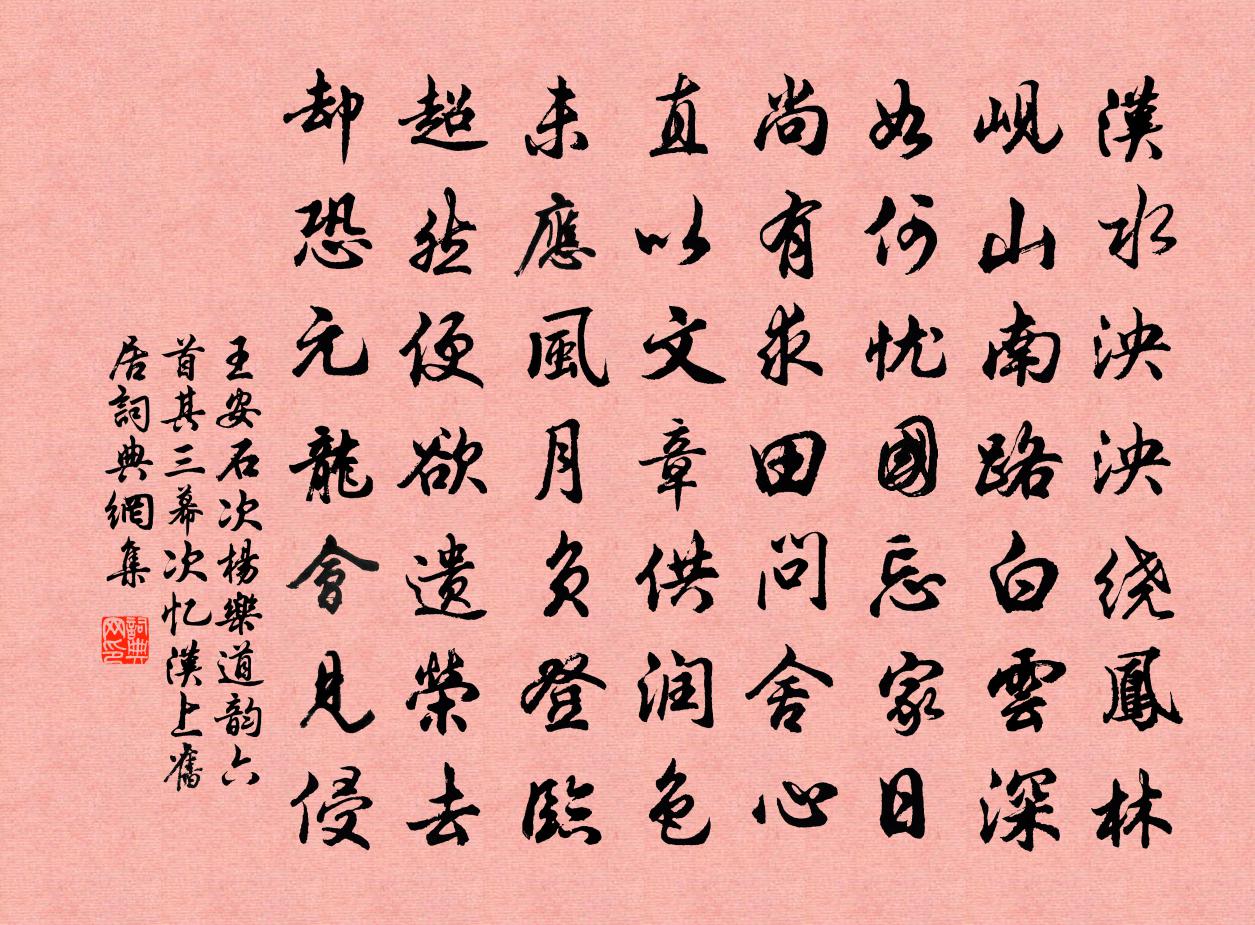 漢水泱泱绕鳳林
峴山南路白雲深
如何忧國忘家日
尚有求田問舍心
直以文章供润色
未應風月負登臨
超然便欲遗榮去
却恐元龍會見侵
王安石次楊樂道韵六
首其三幕次忆漢上舊
居詞典網集
詞典
网印